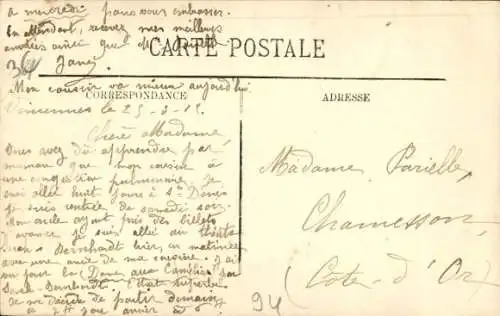 à mercredi pour vous embrasser.
En attendant, recevez mes meilleurs
amitiés ainsi que M.
CARTE POSTALE
Mon cousin va mieux aujourd'hui
CORRESPONDANCE
ADRESSE
Vincennes le 25-3-15
Chère Madame,
Vous avez dû apprendre par
maman que mon cousin a
une congestion pulmonaire, je
suis allée huit jours à St Denis
je suis rentrée de samedi soir.
Mon oncle ayant pris des billets
d'avance je suis allée au théâtre
Sarah Bernhardt hier, en matinée
avec une amie de ma cousine. J'ai
vu jouer la (Dame aux Camélias) par
Sarah Bernhardt. C'était superbe
Je me décide de partir demain
Madame Parielle,
Chamesson,
(Côte-d'Or)
94